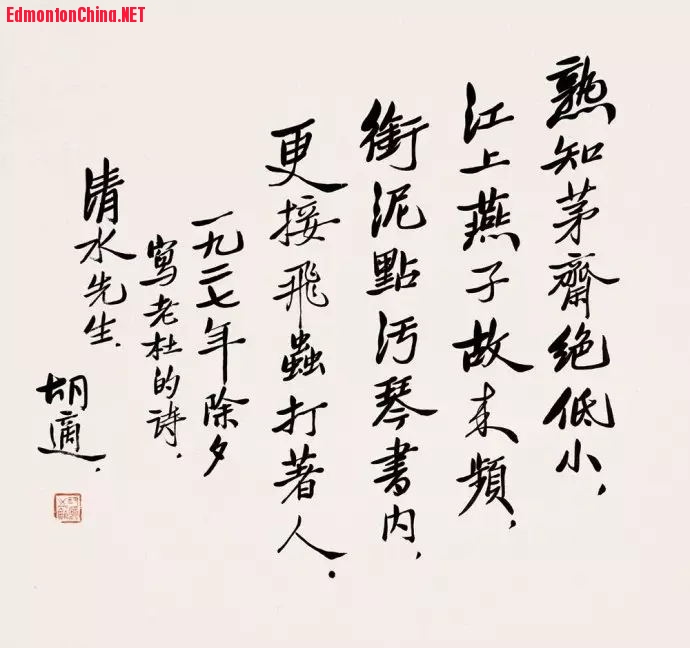 EdmontonChina.NET
熟知茅齋絶低小，
江上燕子故来頻，
銜泥點汚琴書内，
更接飛蟲打著人．
一九二七年除夕
寫老杜的詩．
清水先生．
胡適．